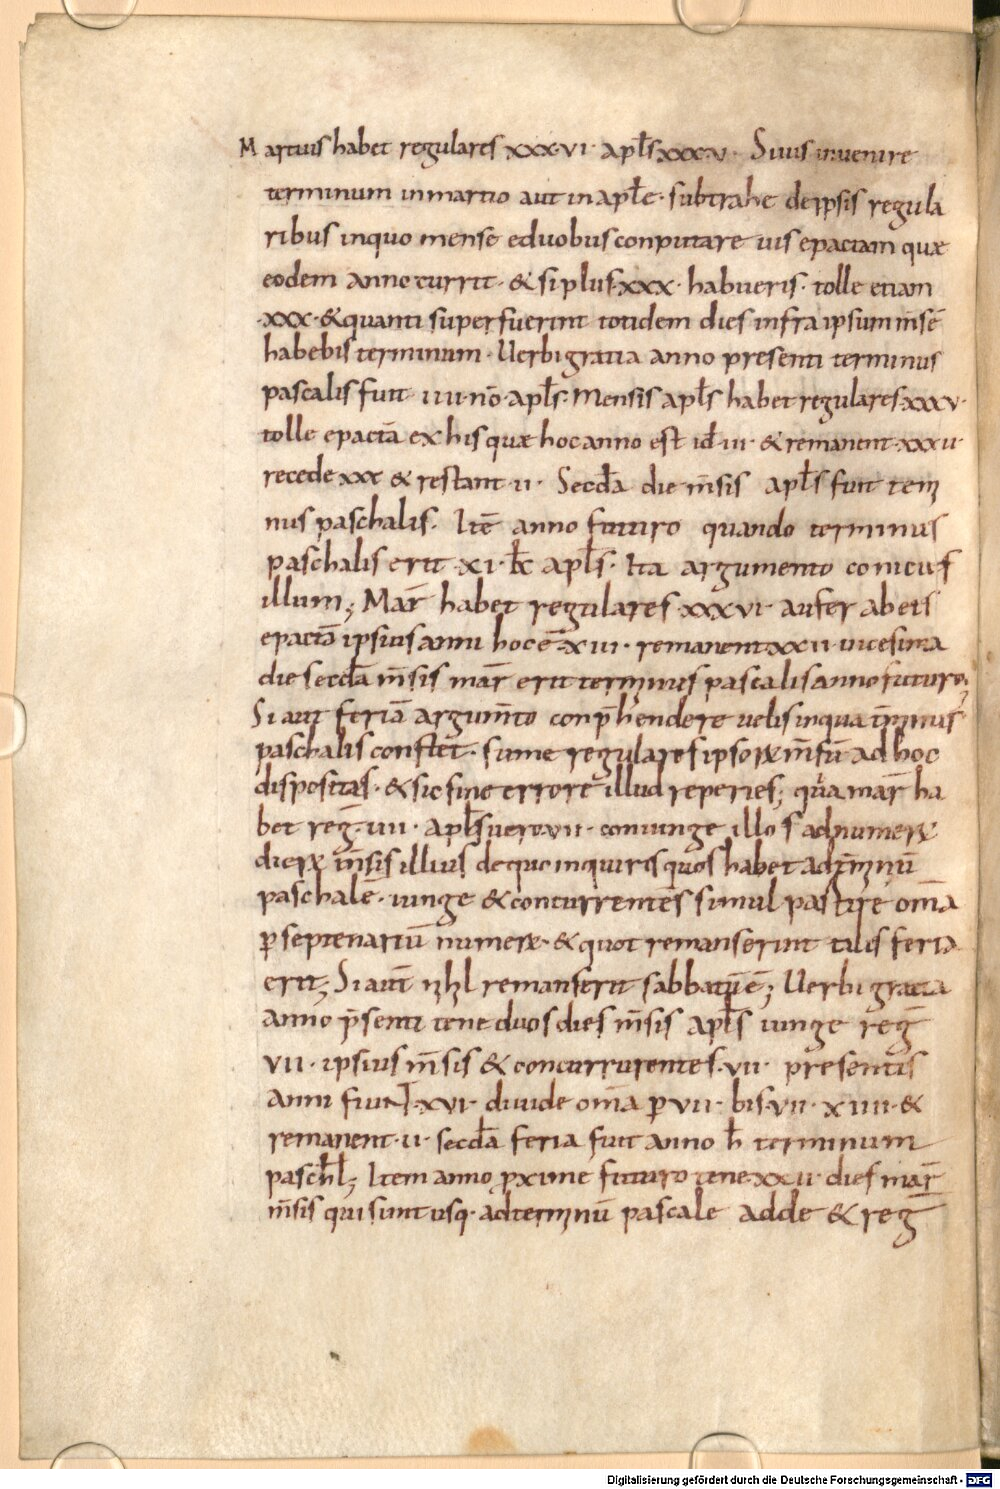 Martius habet regulares xxxvi· apłs xxxv· Siuis inuenire
terminum inmartio aut in apłe· subtrahe deipsis regula
ribus inquo mense eduobus conputare uis epactam quæ
eodem anno currit· & si plus xxx· habueris· tolle etiam
·xxx· & quanti super fuerint totidem dies infra ipsum m̄sē
habebis terminum· Uerbi gratia anno presenti terminus
pascalis fuit ·iiii· nō· apłs· Mensis apłs habet regulares ·xxxv·
tolle epactā ex his quæ hoc anno est id ·iii· & remanent ·xxxii·
recede xxx & restant ·ii· Secd̄a die m̄sis apłs fuit term̄
nus paschalis· Itē anno futuro quando terminus
paschalis erit ·xi· kł apłs· Ita argumento conicis
illum; Mar̄ habet regulares ·xxxvi· aufer ab eis
epactā ipsius anni hoc ē xiiii· remanent xxii· uicesima
die secd̄a m̄sis mar̄ erit terminus pascalis anno futuro;
Si aut feriā argum̄to conp̄hendere uelis inqua t̄minus
paschalis constet· sume regulares ipsoꝝ m̄sū ad hoc
dispositas· & sic sine errore illud reperies; quia mar̄ ha
bet reḡ· iiii· apłs uero ·vii· coniunge illos adnumerꝝ
dierꝝ m̄sis illius de quo inquiris quos habet adt̄minū
paschalē· iunge & concurrentes simul partire om̄a
ꝑ septenariū numerꝝ· & quot remanserint talis feria
erit; Si aut nihil remanserit sabbatū ē; Uerbi gratia
anno p̄senti tene duos dies m̄sis apłs iunge reḡ
vii· ipsius m̄sis & concurrentes ·vii· presentis
anni fiunt ·xvi· diuide om̄a ꝑ vii· bis ·vii· xiiii· &
remanent ·ii· secd̄a feria fuit anno h̄ terminum
pasch̄ł; Item anno ꝓxime futuro tene ·xxii· dies mar̄
m̄sis qui sunt usq· adterminū pascale adde & reḡ
Digitalisierung gefördert durch die Deutsche Forschungsgemeinschaft - DFG